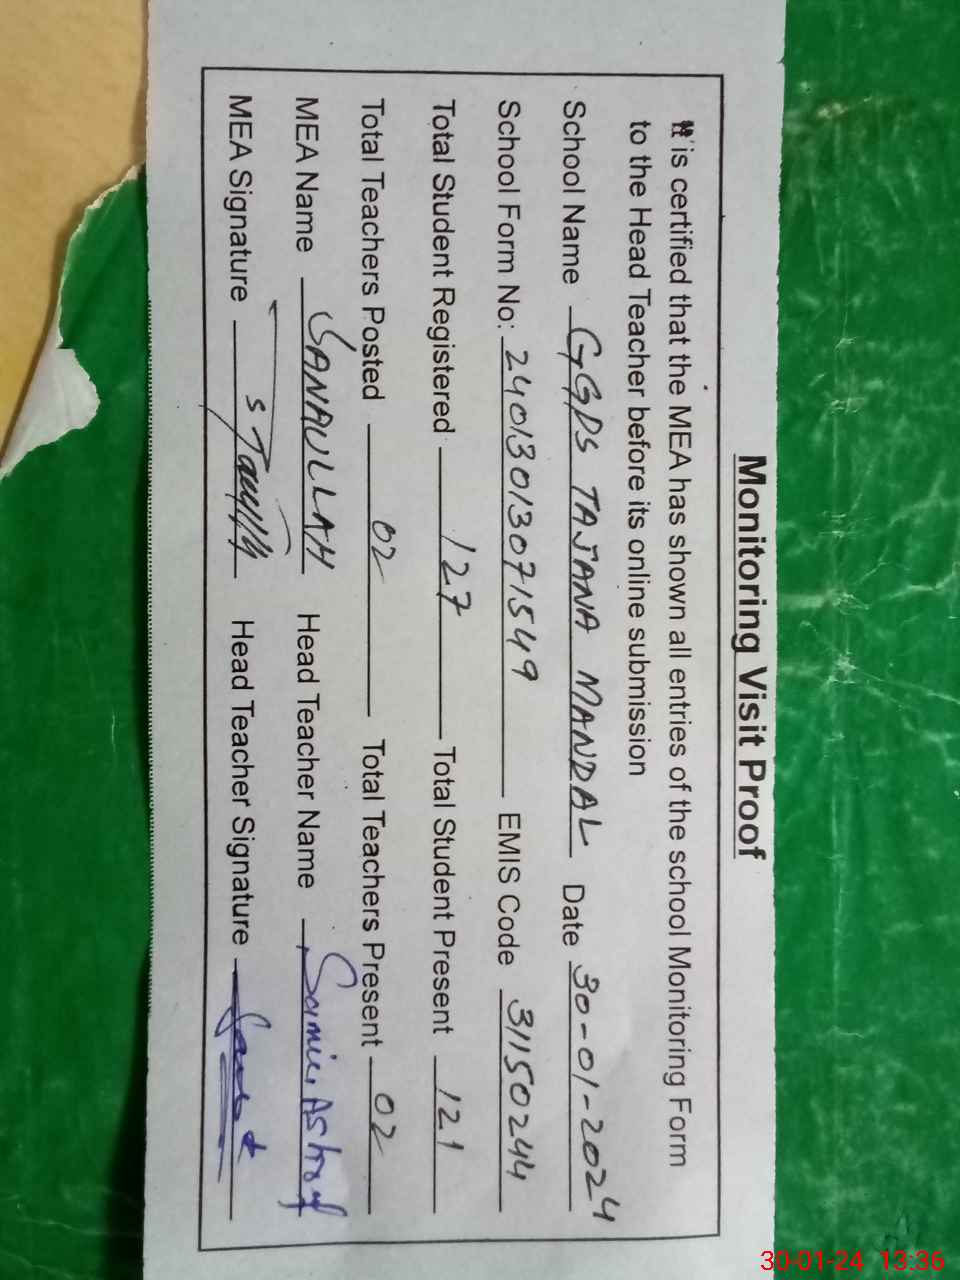 Monitoring Visit Proof
It is certified that the MEA has shown all entries of the school Monitoring Form
to the Head Teacher before its online submission
School Name GGPS TAJANA MANDAL Date 30-01-2024
School Form No: 24013013071549 EMIS Code 31150244
Total Student Registered 127 Total Student Present 121
Total Teachers Posted 02 Total Teachers Present 02
MEA Name SANAULLAH Head Teacher Name Samia Ashraf
MEA Signature Head Teacher Signature
30-01-24 13:36